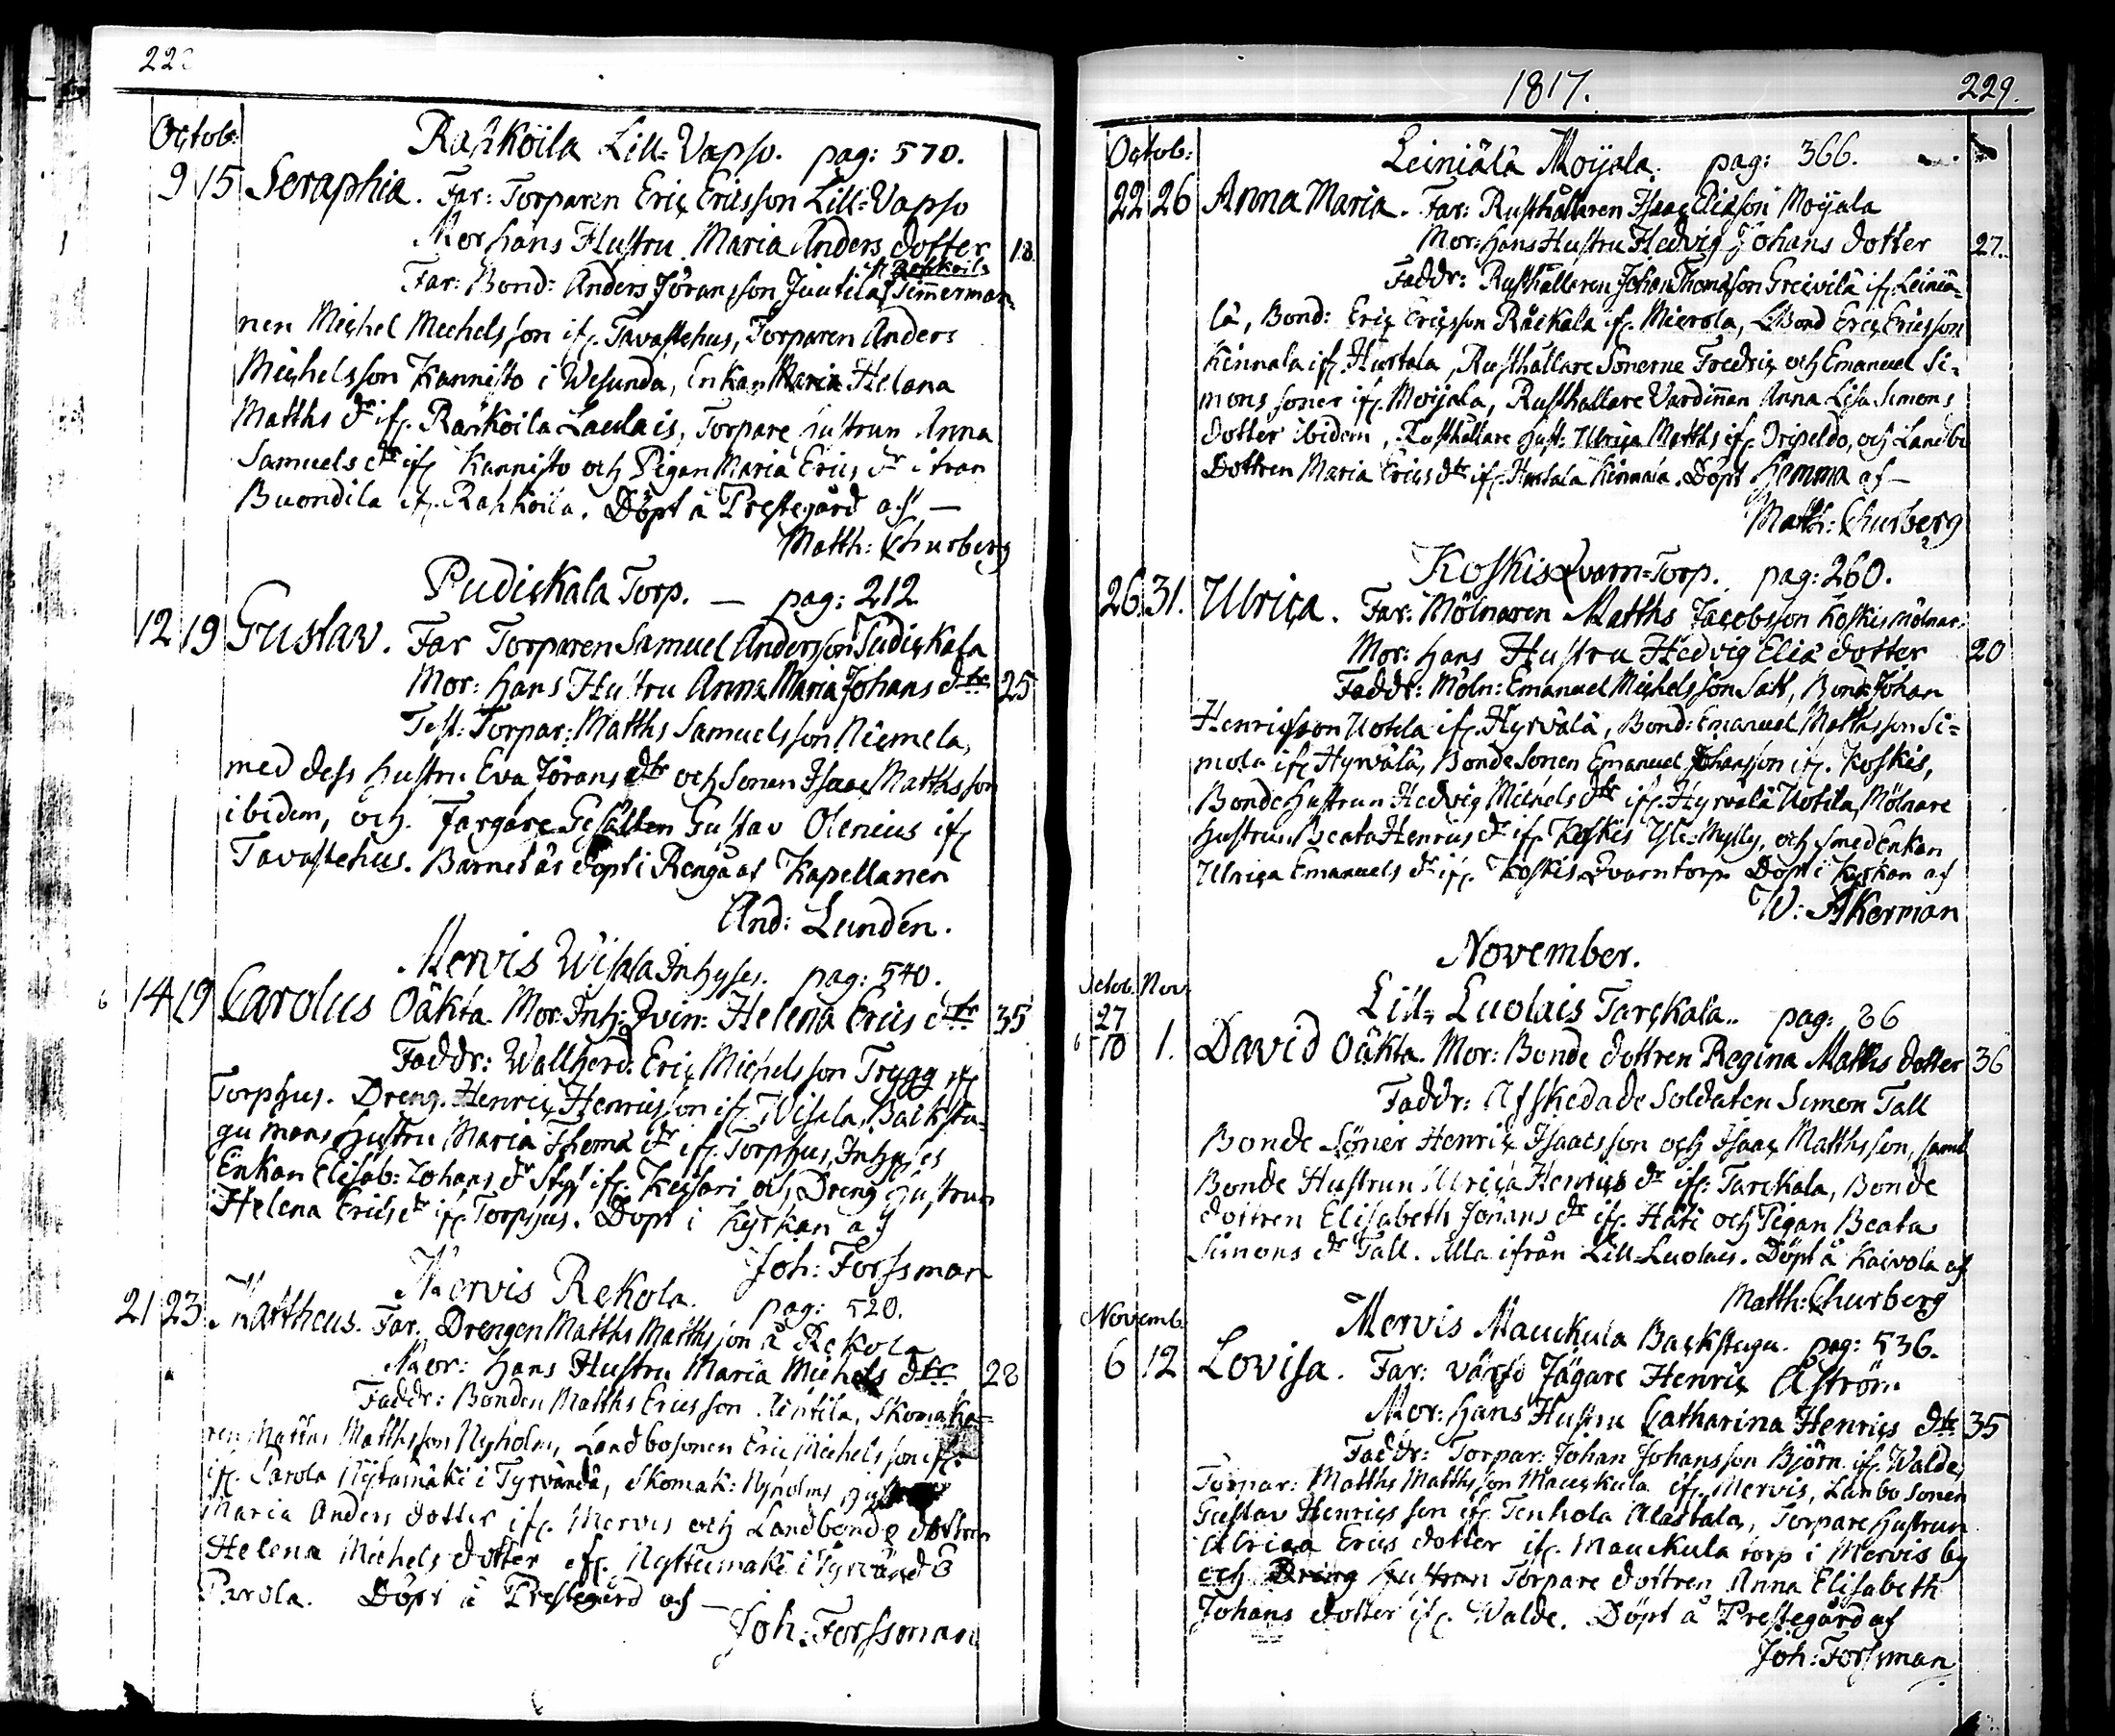 Octob:
Rahkoila Lill-Vapso. pag: 570.
9 15 Seraphia. Far: Torparen Eric Ericsson Lill-Vapso
Mor hans Hustru Maria Anders dotter 18
Far: Bond: Anders Jöransson Juutila if. Rahkoila Timmerman-
nen Michel Michelsson if. Tavastehus, Torparen Anders
Michelsson Kannisto i Wesunda, Enkan Maria Helena
Matths dr if. Rahkoila Laulais, Torpare hustrun Anna
Samuels dr if. Kannisto och Pigan Maria Erics dr ifran
Buondila if. Rahkoila. Döpt å Prestegård af —
Matth: Churberg
Pudickala Torp. — pag: 212
12 19 Gustav. Far Torparen Samuel Andersson Pudickala
Mor: hans Hustru Anna Maria Johans dtr 25
Test: Torpar: Matths Samuelsson Niemela,
med dess hustru Eva Jörans dtr och Sonen Isaac Matthsson
ibidem, och Färgare Gesällen Gustav Olenius if.
Tavastehus. Barnet är döpt i Rengå af Kapellanen
And: Lundén.
Mervis Wisala Inhyses. pag: 540.
6 14 19 Carolus Oäkta. Mor: Inh: Qvin: Helena Erics dtr 35
Faddr: Wallherd: Eric Michelsson Trygg if.
Torphus. Dreng. Henric Henricsson if. Wisala, Backstu-
gu mans hustru Maria Thoma dr if. Torphus, Inhyses
Enkan Elisab: Johans dr Styf if. Keisari och Dreng hustrun
Helena Erics dr if. Torphus. Döpt i Kyrkan af
Joh: Forssman
Mervis Rekola. pag: 520.
21 23 Mattheus. Far. Drengen Matths Matthsson å Rekola
Mor: hans Hustru Maria Michels dtr 28
Faddr: Bonden Matths Ericsson Äntila, Skomaka-
ren Matths Matthsson Nyholm, Landbosonen Eric Michelsson if.
if. Parola Nyttamäki i Tyrvändä, Skomak: Nyholms
Maria Anders dotter if. Mervis och Landbonde dottren
Helena Michels dotter if. Nyttumäki i Tyrvändö
Parola. Döpt å Prestegård af —
Joh: Forssman
1817. 229.
Octob:
Leiniälä Moijala. pag: 366.
22 26 Anna Maria. Far: Rusthållaren Isaac Eliasson Moijala
Mor: hans Hustru Hedvig Johans dotter 27.
Faddr: Rusthållaren Johan Thomasson Greivilä if. Leiniä-
lä, Bond: Eric Ericsson Räikälä if. Mierola, L:Bond Eric Ericsson
Kinnala if. Hurtala, Rusthållare Sönerne Fredric och Emanuel Si-
mons söner if. Moijala, Rusthållare Värdinnan Anna Lisa Simons
dotter ibidem, Rusthållare hust: Ulrica Matths if. Oripeldo, och Landbo
Dottren Maria Erics dtr if. Hurtala Kinnala. Döpt hemma af —
Matth: Churberg
Koskis Qvarn-Torp. pag: 260.
26 31. Ulrica. Far: Mölnaren Matths Jacobsson Koskis mölnar.
Mor: hans Hustru Hedvig Elia dotter 20
Faddr: Möln: Emanuel Michelsson Salt, Bond: Johan
Henricsson Uotila if. Hyrvälä, Bond: Emanuel Matthsson Si-
mola if. Hyrvälä, Bonde Sonen Emanuel Johansson if. Koskis,
Bonde hustrun Hedvig Michels dtr if. Hyrvälä Uotila, Mölnare
hustrun Beata Henrics dr if. Koskis Yli-Mylly, och Smed Enkan
Ulrica Emanuels dr if. Koskis Qvarntorp. Döpt i Kyrkan af
W: Åkerman
November.
Octob. Nov:
Lill-Luolais Tarckala. pag: 86
27
6 10 1. David Oäkta. Mor: Bonde dottren Regina Matths dotter 36
Faddr: Afskedade Soldaten Simon Tall
Bonde Söner Henric Isaacsson och Isaac Matthsson, samt
Bonde Hustrun Ulrica Henrics dr if. Tarckala, Bonde
dottren Elisabeth Jörans dr if. Häti och Pigan Beata
Simons dr Tall. Alla ifrån Lill-Luolais. Döpt å Kaivola af
Matth: Churberg
Novemb.
Mervis Mauckula Backstugu. pag: 536.
6 12 Lovisa. Far: värfd Jägare Henric Åström
Mor: hans Hustru Catharina Henrics dtr 35
Faddr: Torpar: Johan Johansson Björn if. Walde,
Torpar: Matths Matthsson Mauckula if. Mervis, Lanbo Sonen
Gustav Henricsson if. Tenhola Alastala, Torpare hustrun
Ulrica Erics dotter if. Mauckula torp i Mervis by
och Dreng hustrun Torpare dottren Anna Elisabeth
Johans dotter if. Walde. Döpt å Prestegård af
Joh: Forssman